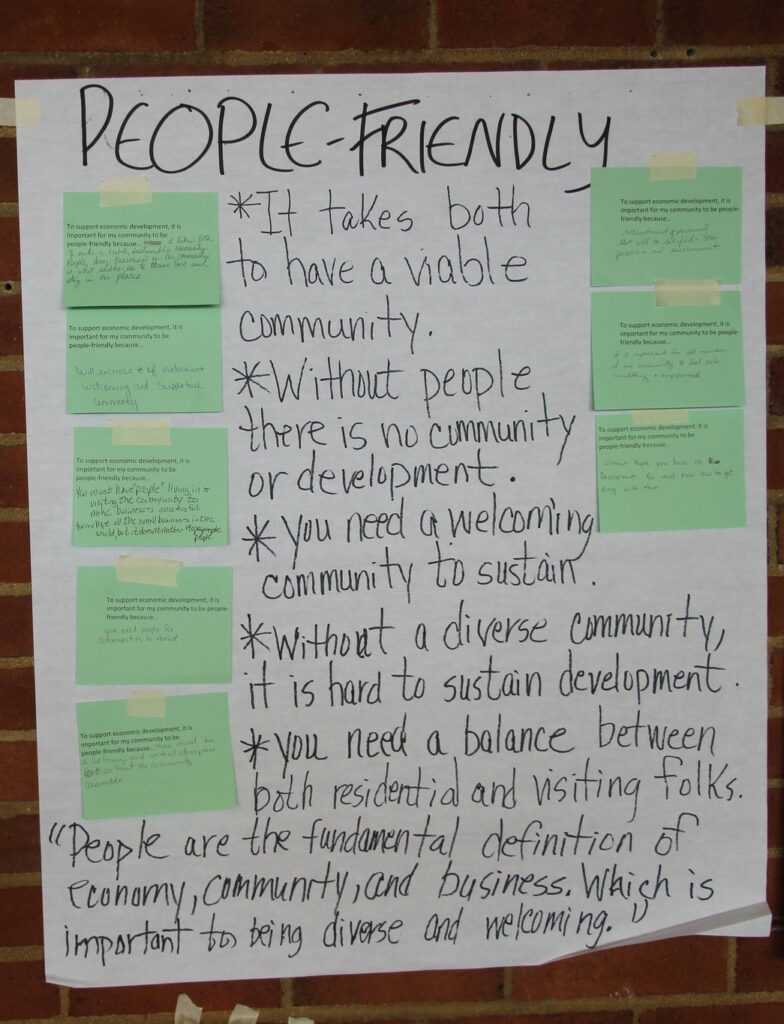 PEOPLE-FRIENDLY
*It takes both
to have a viable
community.
*Without people
there is no community
or development.
*You need a welcoming
community to sustain.
*Without a diverse community,
it is hard to sustain development.
*You need a balance between
both residential and visiting folks.
"People are the fundamental definition of
economy, community, and business. Which is
important to being diverse and welcoming."
To support economic development, it is
important for my community to be
people-friendly because... it takes both
To support economic development, it is
important for my community to be
people-friendly because...
Will increase # of
Welcoming and Supportive
Community
To support economic development, it is
important for my community to be
people-friendly because...
You must have "people" living in or
visiting the community to
make businesses successful.
You can have all the small businesses in the
world, but it doesn't matter
people
To support economic development, it is
important for my community to be people-
friendly because...
you need people for
communities to thrive
To support economic development, it is
important for my community to be
people-friendly because... there must be
a welcoming and
so that the community
To support economic development, it is
important for my community to be people-
friendly because...
Recruitment of personnel
that will be satisfied w/ their
and environment
To support economic development, it is
important for my community to be people-
friendly because...
it is important for all members
of our community to feel safe,
+ supported
To support economic development, it is
important for my community to be
people-friendly because...
Without people you have no
Development. You must know how to get
along with them